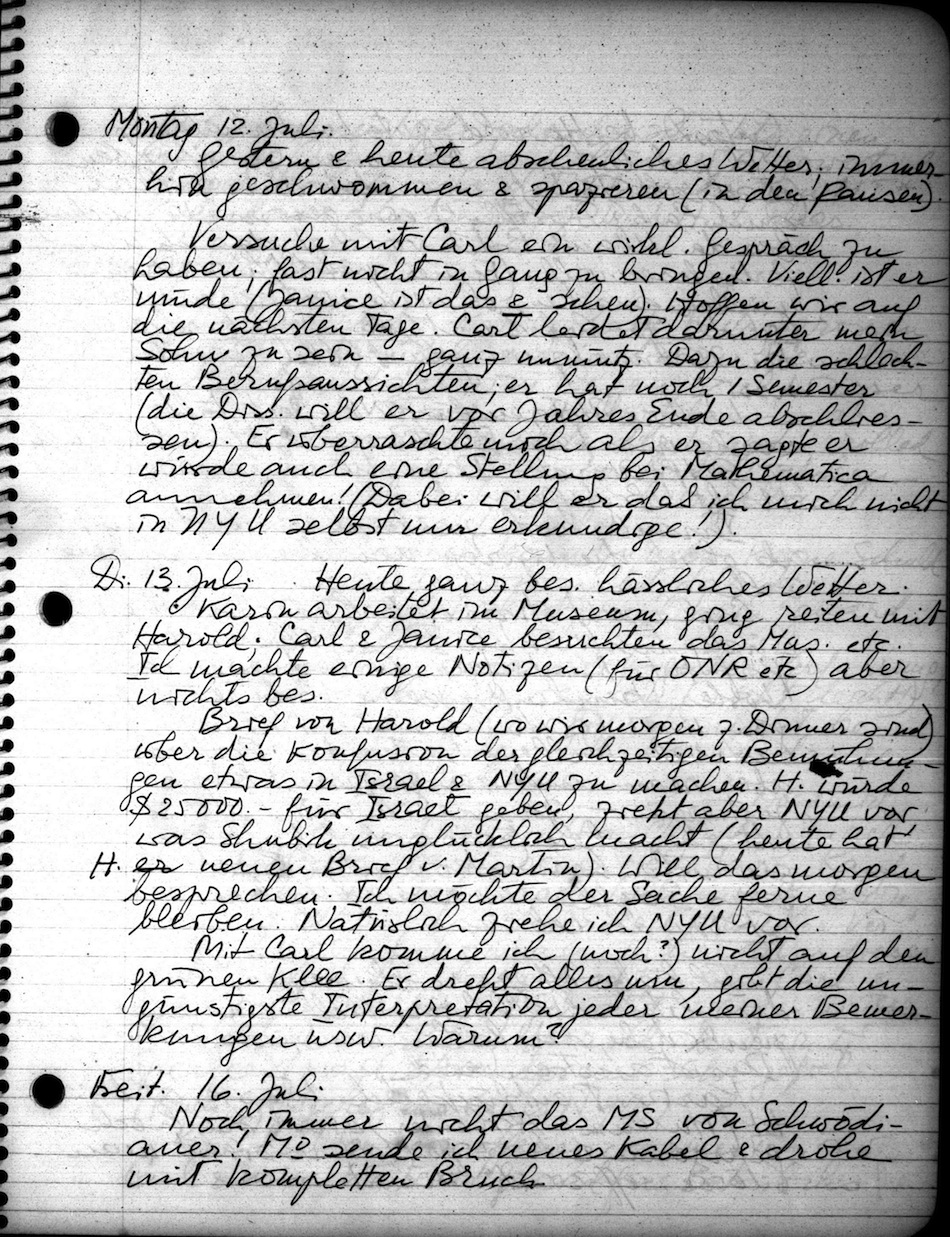 Montag 12. Juli.
Gestern & heute abscheuliches Wetter; immer-
hin geschwommen & spazieren (in den Pausen).
Versuche mit Carl ein wirkl. Gespräch zu
haben; fast nicht in Gang zu bringen. Viell. ist er
müde (Janice ist das & schen). Hoffen wir auf
die nächsten Tage. Carl leidet darunter mein
Sohn zu sein — ganz unnütz. Dazu die schlech-
ten Berufsaussichten; er hat noch 1 Semester
(die Diss. will er vor Jahres Ende abschlies-
sen). Er überraschte mich als er sagte er
würde auch eine Stellung bei Mathematica
annehmen! (Dabei will er daß ich mich nicht
in NYU selbst nur erkundige!).
Di. 13. Juli. Heute ganz bes. hässliches Wetter.
Karin arbeitet im Museum, ging reiten mit
Harold; Carl & Janice besuchten das Mus. etc.
Ich machte einige Notizen (für ONR etc) aber
nichts bes.
Brief von Harold (wo wir morgen z. Dinner sind)
über die Konfusion der gleichzeitigen Bemühun-
gen etwas in Israel & NYU zu machen. H. würde
$25000.- für Israel geben, zieht aber NYU vor,
was Shubik unglücklich macht (heute hat
H. er neuen Brief v. Martin). Will das morgen
besprechen. Ich möchte der Sache ferne
bleiben. Natürlich ziehe ich NYU vor.
Mit Carl komme ich (noch?) nicht auf den
grünen Klee. Er dreht alles um, gibt die un-
günstigste Interpretation jeder meiner Bemer-
kungen usw. Warum?
Freit. 16. Juli
Noch immer nicht das MS von Schwödi-
auer! Mo sende ich neues Kabel & drohe
mit kompletten Bruch